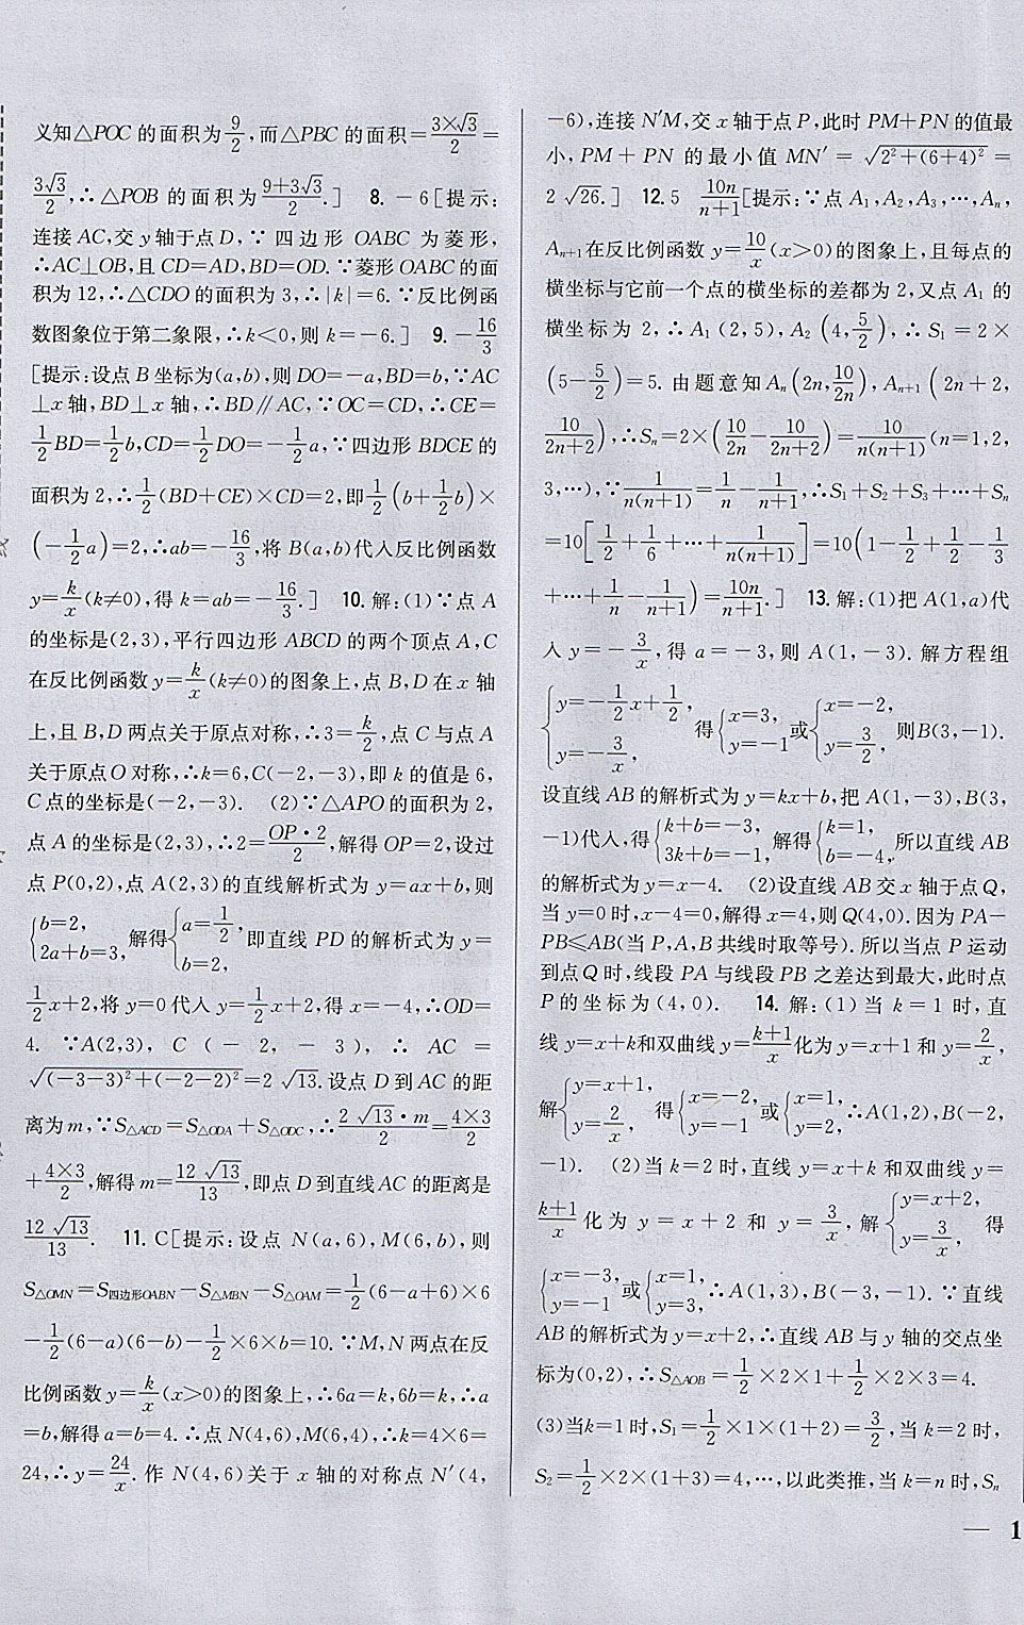 义知△POC 的面积为9/2,而△PBC 的面积=(3×√3)/2=
3√3/2,∴△POB 的面积为(9+3√3)/2.] 8. -6[提示:
连接 AC,交 y 轴于点 D,∵ 四边形 OABC 为菱形,
∴AC⊥OB,且 CD=AD,BD=OD.∵菱形 OABC 的面
积为 12,∴△CDO 的面积为 3,∴|k|=6.∵反比例函
数图象位于第二象限,∴k<0,则 k=-6.] 9. -16/3
[提示:设点 B 坐标为(a,b),则 DO=-a,BD=b,∵AC
⊥x 轴,BD⊥x 轴,∴BD∥AC,∵OC=CD,∴CE=
1/2BD=1/2b,CD=1/2DO=-1/2a,∵四边形 BDCE 的
面积为 2,∴1/2(BD+CE)×CD=2,即1/2(b+1/2b)×
(-1/2a)=2,∴ab=-16/3,将 B(a,b)代入反比例函数
y=k/x(k≠0),得 k=ab=-16/3.] 10. 解:(1)∵点 A
的坐标是(2,3),平行四边形 ABCD 的两个顶点 A,C
在反比例函数 y=k/x(k≠0)的图象上,点 B,D 在 x 轴
上,且 B,D 两点关于原点对称,∴3=k/2,点 C 与点 A
关于原点 O 对称,∴k=6,C(-2,-3),即 k 的值是 6,
C 点的坐标是(-2,-3). (2)∵△APO 的面积为 2,
点 A 的坐标是(2,3),∴2=(OP·2)/2,解得 OP=2,设过
点 P(0,2),点 A(2,3)的直线解析式为 y=ax+b,则
{b=2, 2a+b=3, 解得{a=1/2, b=2, 即直线 PD 的解析式为 y=
1/2x+2,将 y=0 代入 y=1/2x+2,得 x=-4,∴OD=
4. ∵A(2,3), C(-2,-3),∴ AC =
√((-3-3)²+(-2-2)²)=2√13.设点 D 到 AC 的距
离为 m,∵S△ACD=S△ODA+S△ODC,∴(2√13·m)/2=(4×3)/2
+(4×3)/2,解得 m=12√13/13,即点 D 到直线 AC 的距离是
12√13/13. 11. C[提示:设点 N(a,6),M(6,b),则
S△OMN=S四边形OABN-S△MBN-S△OAM=1/2(6-a+6)×6
-1/2(6-a)(6-b)-1/2×6×b=10.∵M,N 两点在反
比例函数 y=k/x(x>0)的图象上,∴6a=k,6b=k,∴a
=b,解得 a=b=4.∴点 N(4,6),M(6,4),∴k=4×6=
24,∴y=24/x.作 N(4,6)关于 x 轴的对称点 N′(4,
-6),连接 N′M,交 x 轴于点 P,此时 PM+PN 的值最
小,PM+PN 的最小值 MN′=√(2²+(6+4)²)=
2√26.] 12. 5 10n/(n+1)[提示:∵点 A₁,A₂,A₃,…,Aₙ,
Aₙ₊₁在反比例函数 y=10/x(x>0)的图象上,且每点的
横坐标与它前一个点的横坐标的差都为 2,又点 A₁ 的
横坐标为 2,∴A₁(2,5),A₂(4,5/2),∴S₁=2×
(5-5/2)=5.由题意知 Aₙ(2n,10/2n),Aₙ₊₁(2n+2,
10/(2n+2)),∴Sₙ=2×(10/2n-10/(2n+2))=10/(n(n+1))(n=1,2,
3,…),∵1/(n(n+1))=1/n-1/(n+1),∴S₁+S₂+S₃+…+Sₙ
=10[1/2+1/6+…+1/(n(n+1))]=10(1-1/2+1/2-1/3
+…+1/n-1/(n+1))=10n/(n+1).] 13. 解:(1)把 A(1,a)代
入 y=-3/x,得 a=-3,则 A(1,-3).解方程组
{y=-1/2x+1/2, y=-3/x, 得{x=3, y=-1 或{x=-2, y=3/2, 则B(3,-1).
设直线 AB 的解析式为 y=kx+b,把 A(1,-3),B(3,
-1)代入,得{k+b=-3, 3k+b=-1, 解得{k=1, b=-4, 所以直线 AB
的解析式为 y=x-4. (2)设直线 AB 交 x 轴于点 Q,
当 y=0 时,x-4=0,解得 x=4,则 Q(4,0).因为 PA-
PB≤AB(当 P,A,B 共线时取等号).所以当点 P 运动
到点 Q 时,线段 PA 与线段 PB 之差达到最大,此时点
P 的坐标为(4,0). 14. 解:(1)当 k=1 时,直
线 y=x+k和双曲线 y=(k+1)/x化为 y=x+1 和 y=2/x,
解{y=x+1, y=2/x, 得{x=-2, y=-1 或{x=1, y=2, ∴A(1,2),B(-2,
-1). (2)当 k=2 时,直线 y=x+k 和双曲线 y=
(k+1)/x 化为 y=x+2 和 y=3/x,解{y=x+2, y=3/x, 得
{x=-3, y=-1 或{x=1, y=3, ∴A(1,3),B(-3,-1).∵直线
AB 的解析式为 y=x+2,∴直线 AB 与 y 轴的交点坐
标为(0,2),∴S△AOB=1/2×2×1+1/2×2×3=4.
(3)当k=1 时,S₁=1/2×1×(1+2)=3/2,当 k=2 时,
S₂=1/2×2×(1+3)=4,…,以此类推,当 k=n 时,Sₙ
— 1